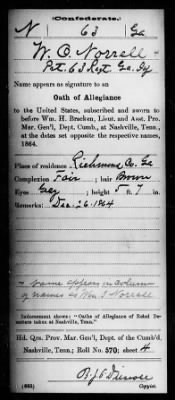 Confederate.
N 63 Ga
W. O. Norrell
Pvt. 63 Regt. Ga. If
Name appears as signature to an
Oath of Allegiance
to the United States, subscribed and sworn to
before Wm. H. Bracken, Lieut. and Asst. Pro.
Mar. Gen'l, Dept. Cumb., at Nashville, Tenn.,
at the dates set opposite the respective names,
1864.
Place of residence Richmond Co. Ga
Complexion Fair ; hair Brown
Eyes Gray ; height 5 ft. 7 in.
Remarks: Dec. 26. 1864
* Name appears in column
of names as Wm Norrell
Indorsement shows: "Oaths of Allegiance of Rebel Deserters taken at Nashville, Tenn."
Hd. Qrs. Prov. Mar. Gen'l, Dept. of the Cumb'd.
Nashville, Tenn; Roll No. 570; sheet 4
(663) Copyist.